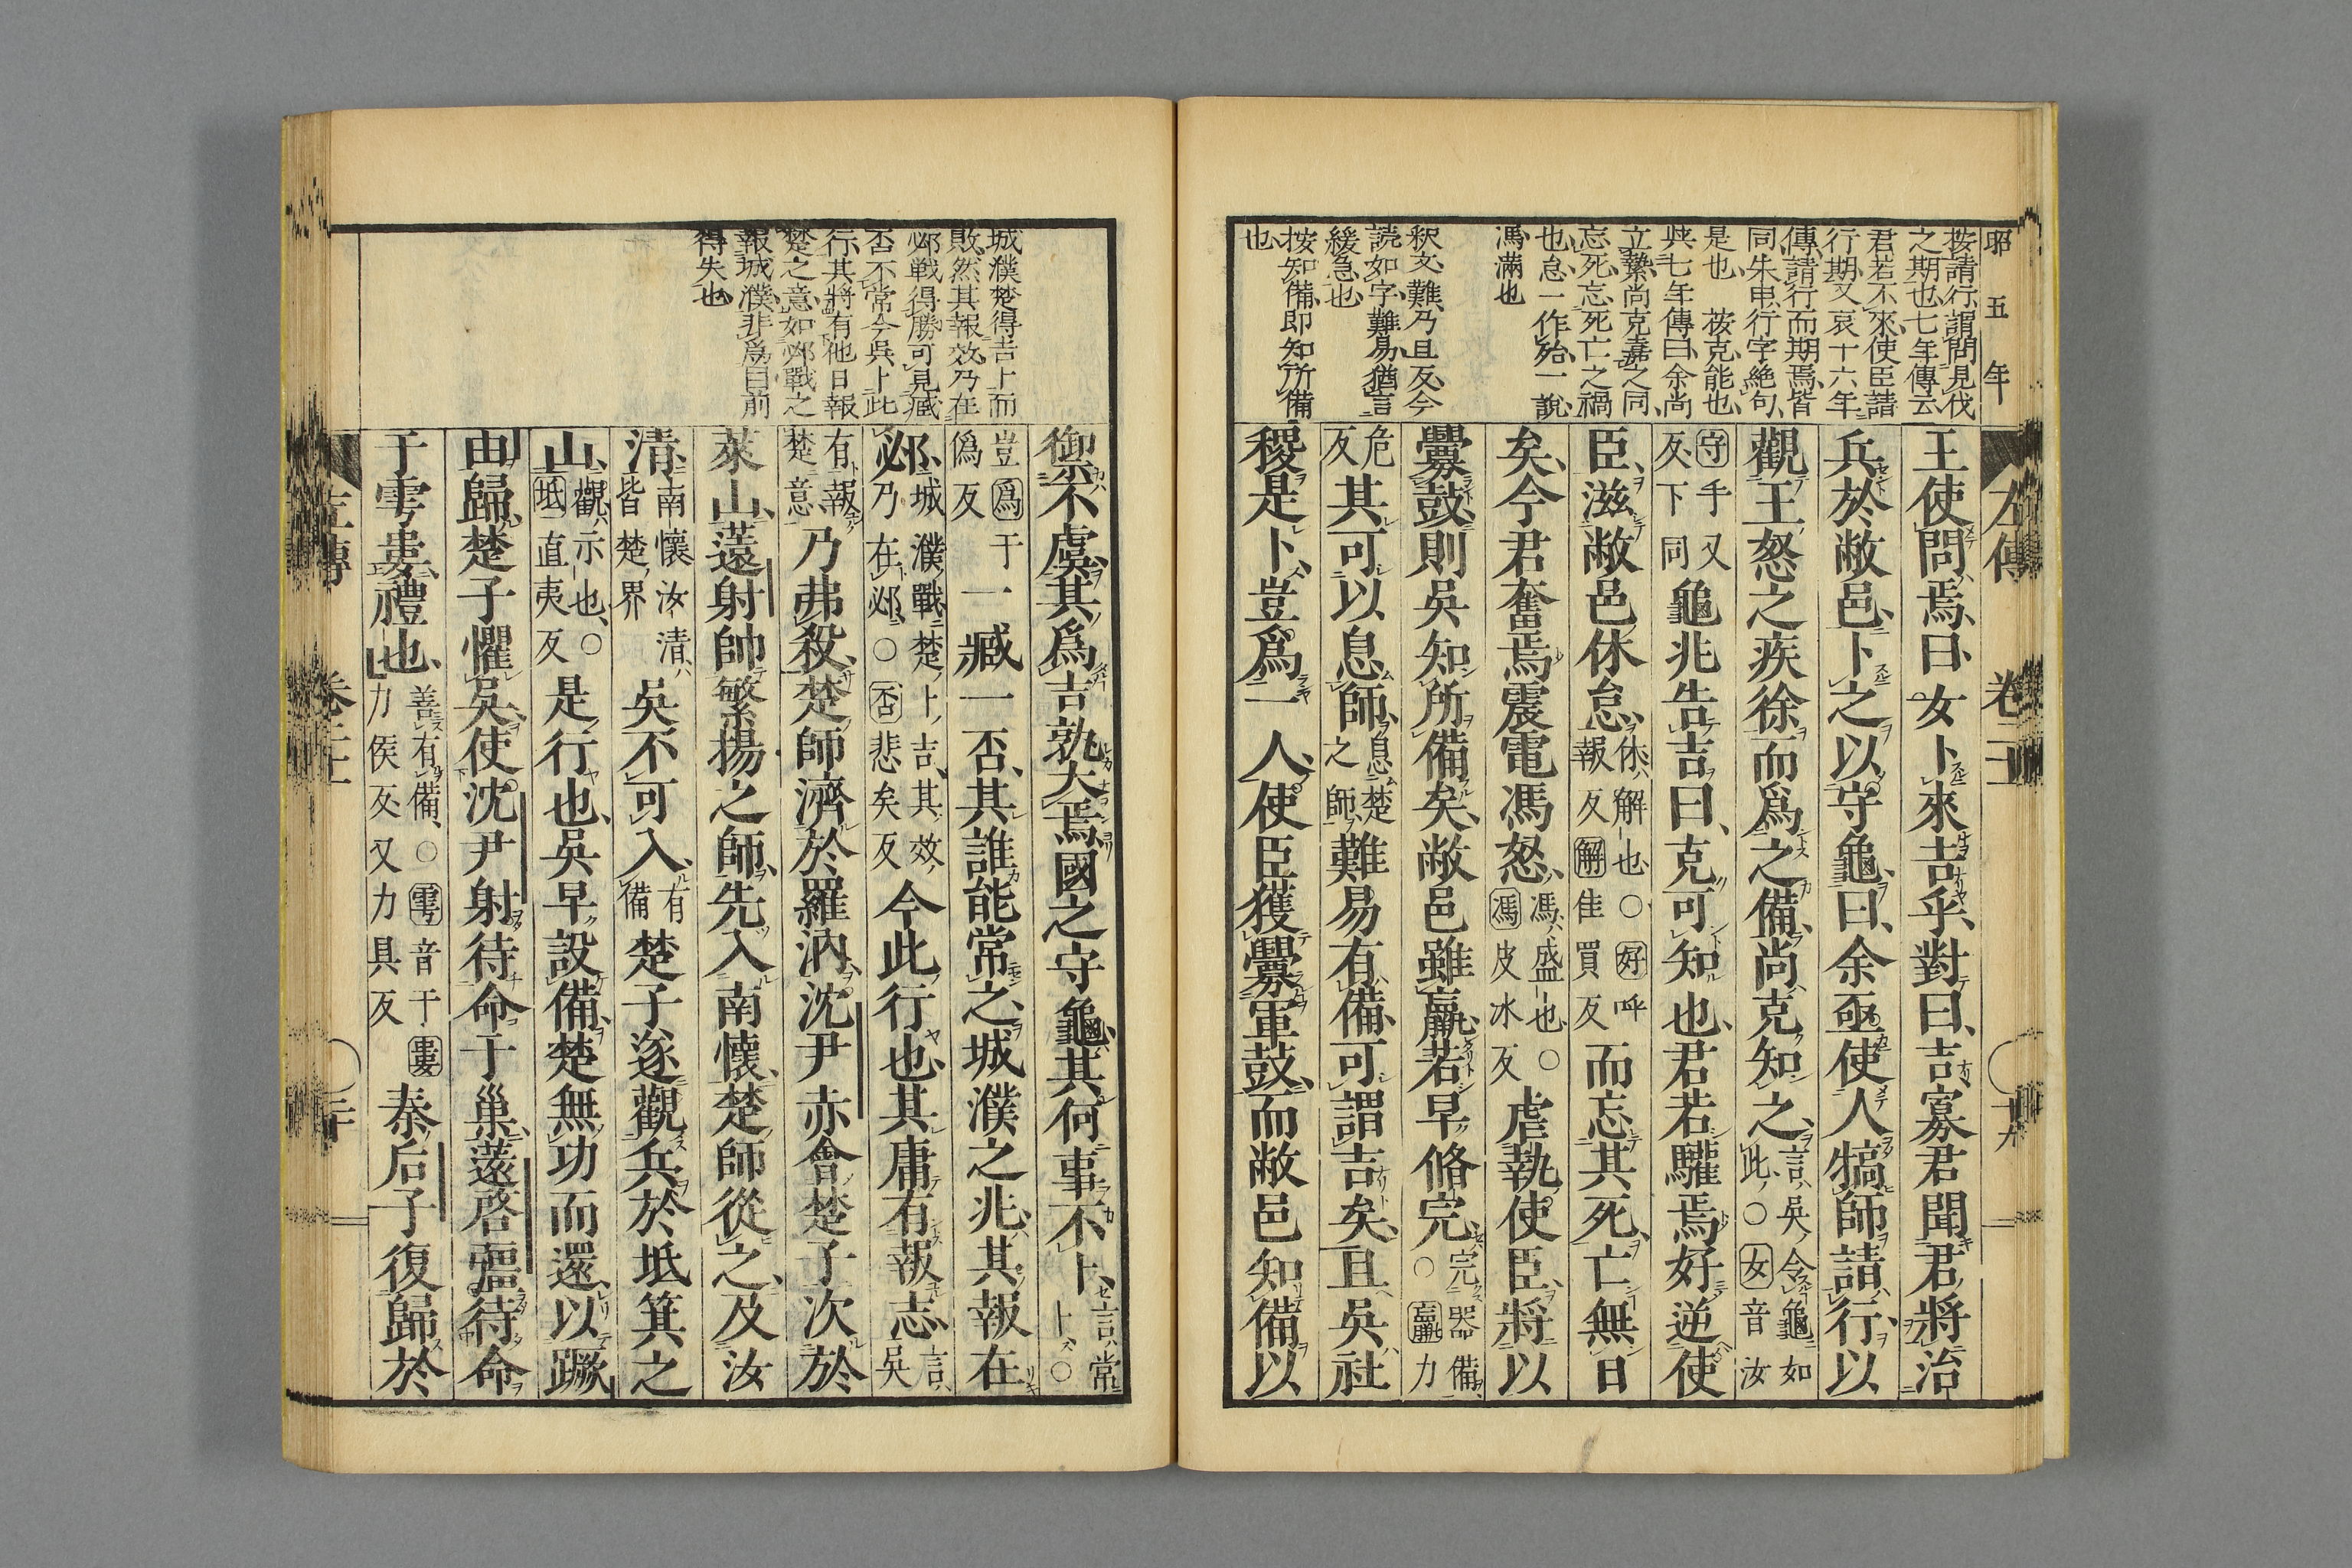 昭五年
左傳
按請行謂問見伐
之期也七年傳云
君若不來使臣請
行期又哀十六年
傳請行而期焉皆
同朱申行字絶句
是也 按克能也
與七年傳曰余尚
立縶尚克嘉之同
忘死忘死亡之禍
也怠一作殆一說
馮滿也
釈文難乃且反今
読如字難易猶言
緩急也
按知備即知所備
也
王使問焉曰女卜來吉乎對曰吉寡君聞君將治
兵於敝邑卜之以守龜曰余亟使人犒師請行以
觀王怒之疾徐而爲之備尚克知之言吳令龜如此○女音汝
守手又反下同龜兆告吉曰克可知也君若驩焉好逆使
臣滋敝邑休怠休解也○好呼報反解佳買反而忘其死亡無日
矣今君奮焉震電馮怒馮盛也○馮皮冰反虐執使臣將以
釁鼓則吳知所備矣敝邑雖羸若早脩完完器備○羸力
危反其可以息師息楚之師難易有備可謂吉矣且吳社
稷是卜豈爲一人使臣獲釁軍鼓而敝邑知備以
城濮楚得吉卜而
敗然其報效乃在
邲戰得勝可見臧
否不常今吳卜此
行其將有他日報
楚之意如邲戰之
報城濮非爲目前
得失也
禦不虞其爲吉孰大焉國之守龜其何事不卜言常卜○
豈爲于僞反一臧一否其誰能常之城濮之兆其報在
邲城濮戰楚卜吉其效乃在邲○否悲矣反今此行也其庸有報志言吳
有報楚意乃弗殺楚師濟於羅汭沈尹赤會楚子次於
萊山薳射帥繁揚之師先入南懷楚師從之及汝
清南懷汝清皆楚界吳不可入有備楚子遂觀兵於坻箕之
山觀示也○坻直夷反是行也吳早設備楚無功而還以蹶
由歸楚子懼吳使沈尹射待命于巢薳啓彊待命
于雩婁禮也善有備○雩音于婁力侯反又力具反秦后子復歸於
左傳